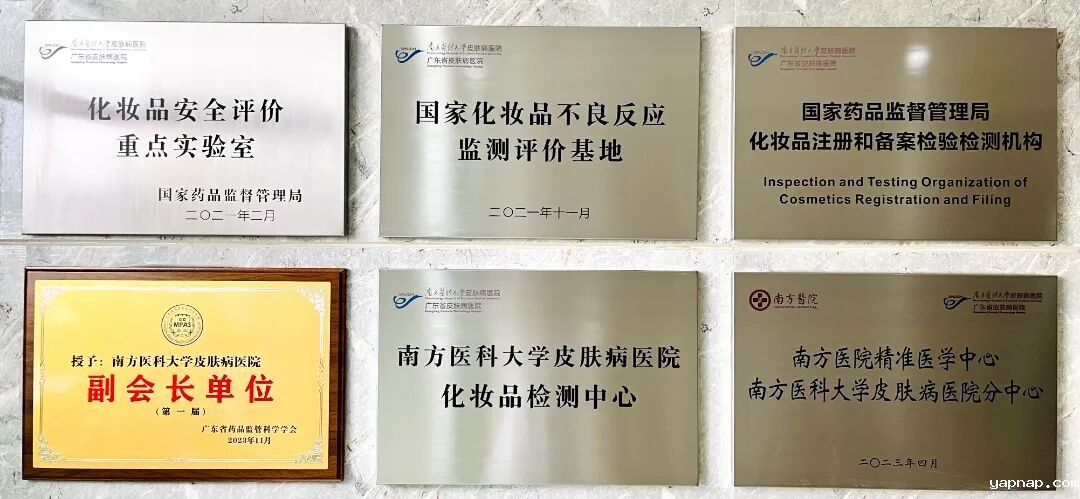 南方医科大学皮肤病医院
广东省皮肤病医院
化妆品安全评价
重点实验室
国家药品监督管理局
二〇二一年二月
SMUDH
南方医科大学皮肤病医院
广东省皮肤病医院
国家化妆品不良反应
监测评价基地
二〇二一年十一月
南方医科大学皮肤病医院
广东省皮肤病医院
国家药品监督管理局
化妆品注册和备案检验检测机构
Inspection and Testing Organization of
Cosmetics Registration and Filing
MPAS
授予：南方医科大学皮肤病医院
副会长单位
（第一届）
广东省药品监管科学学会
2023年11月
南方医科大学皮肤病医院
广东省皮肤病医院
南方医科大学皮肤病医院
化妆品检测中心
南方醫院
NANFANG HOSPITAL
南方医科大学皮肤病医院
广东省皮肤病医院
南方医院精准医学中心
南方医科大学皮肤病医院分中心
二〇二三年四月
yapnap.com